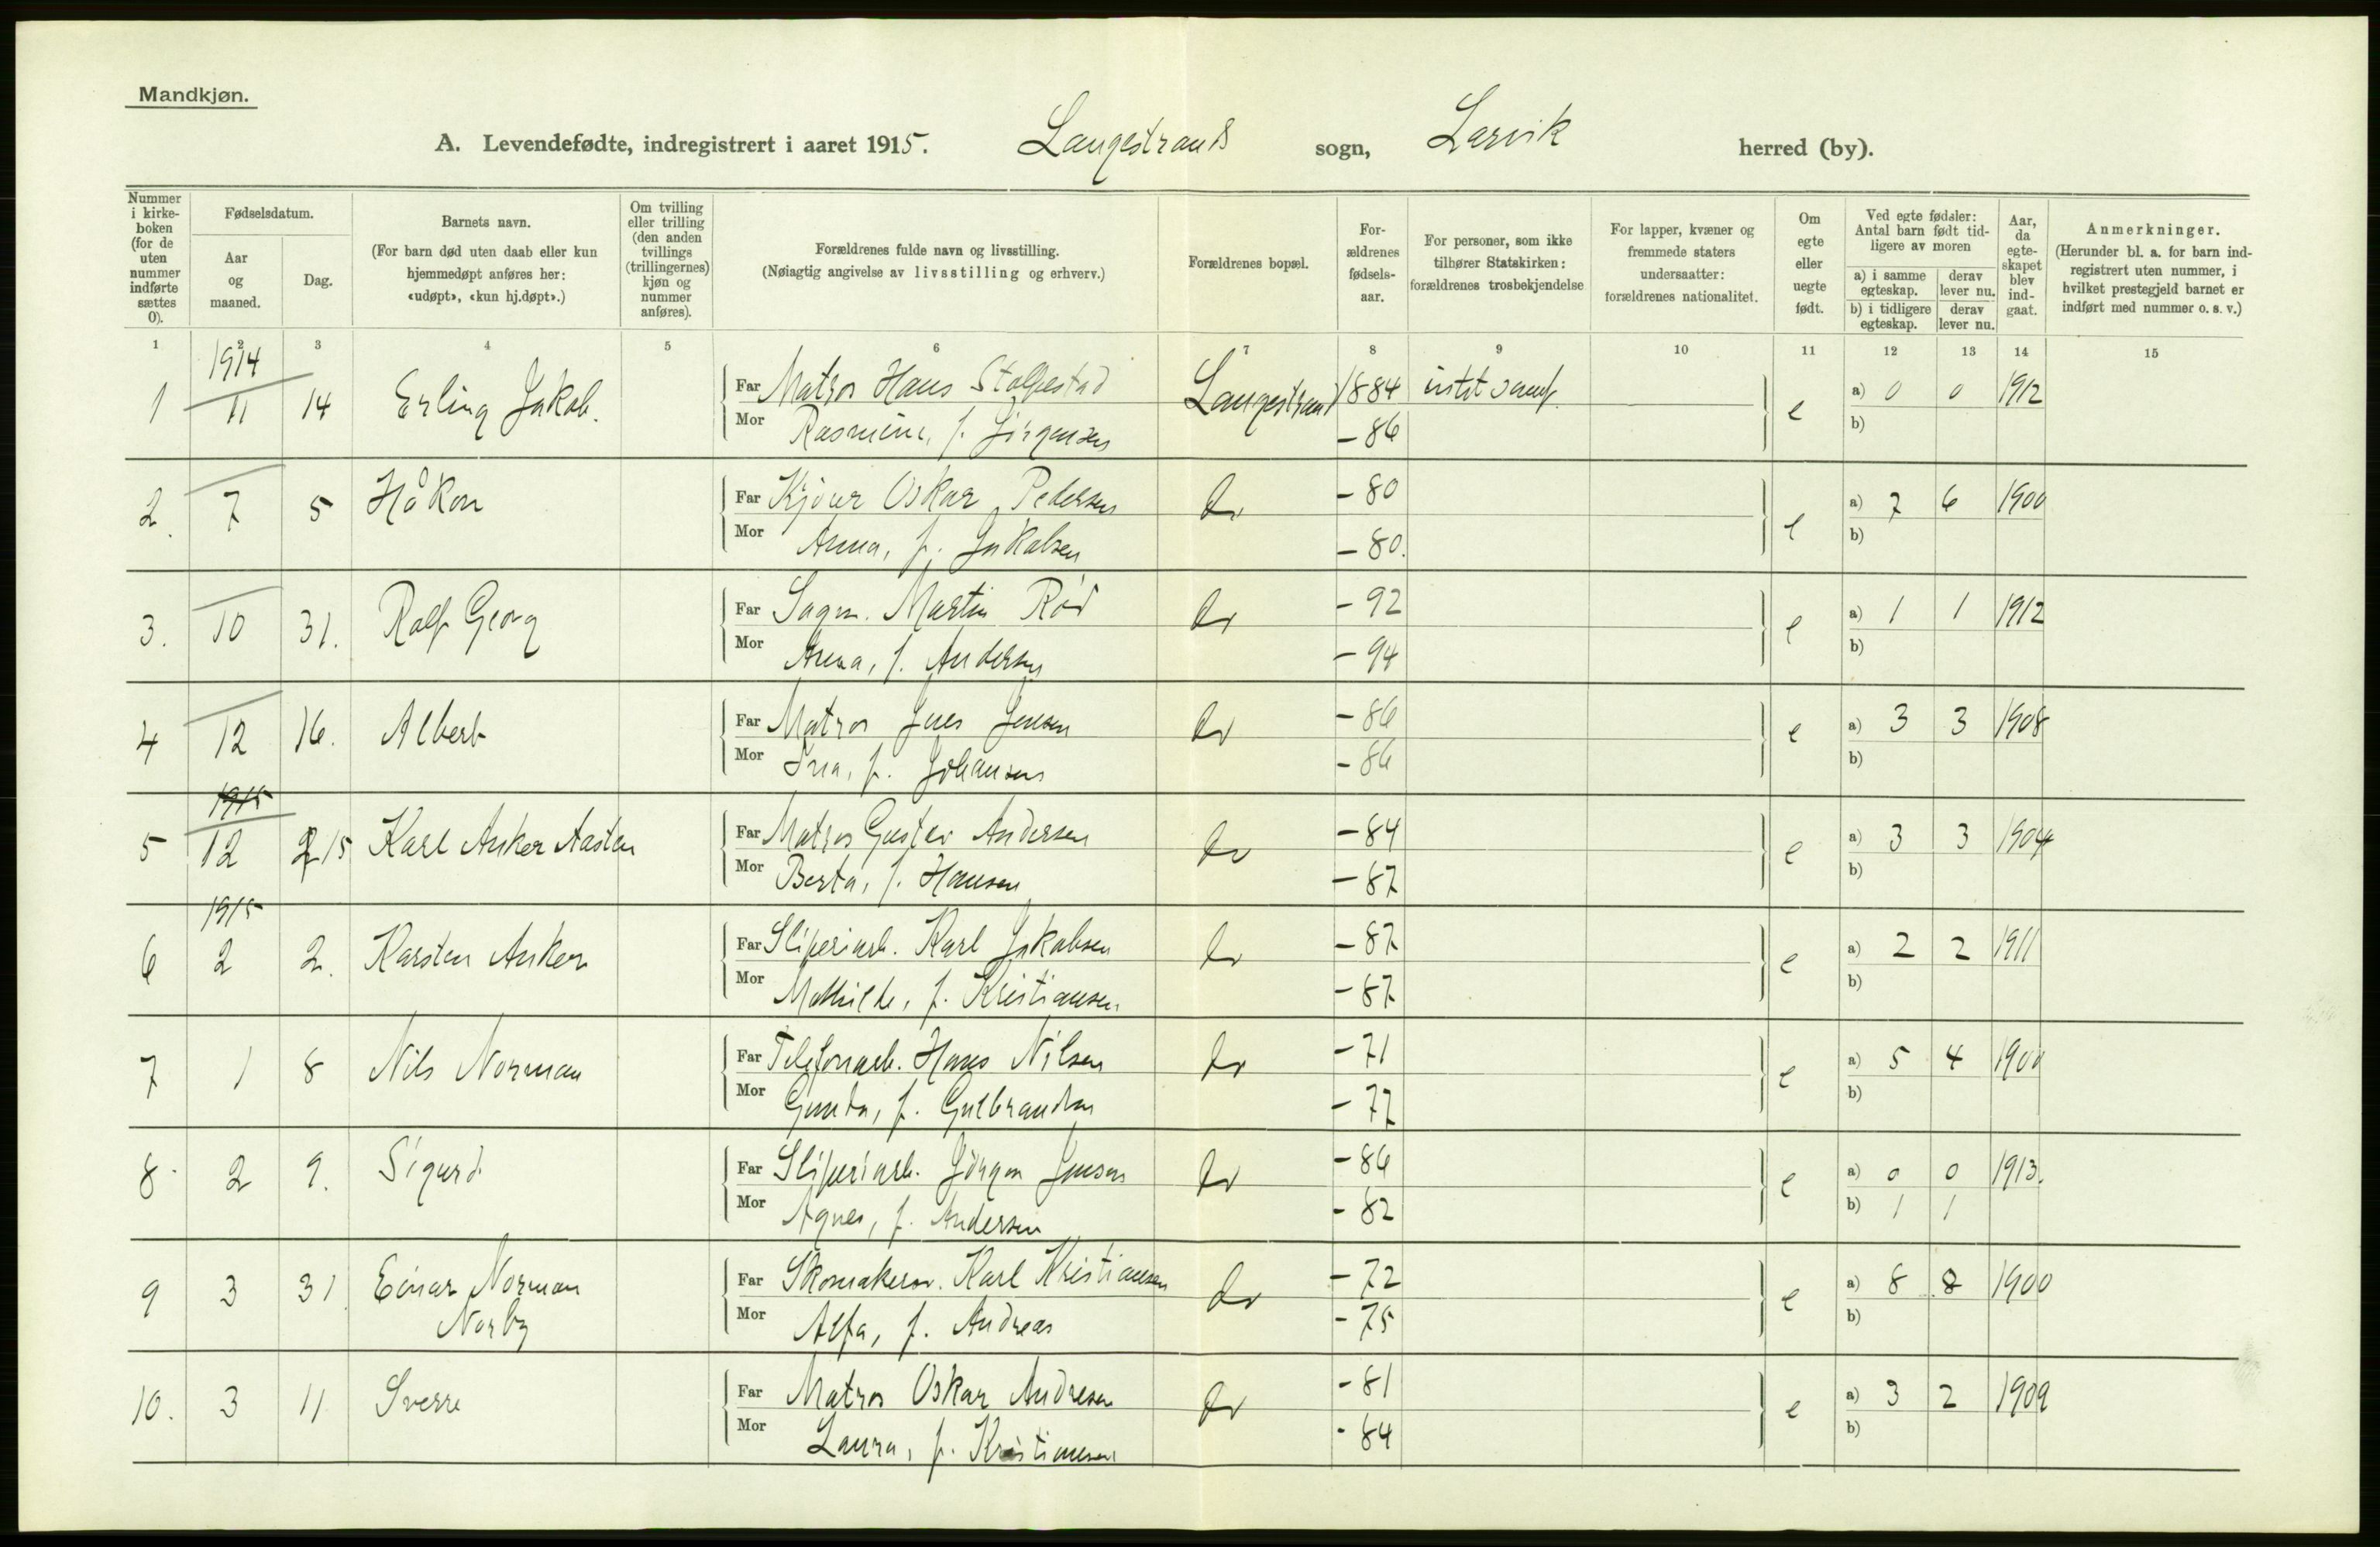 Mandkjøn.
A. Levendefødte, indregistrert i aaret 1915. Langestrands sogn, Larvik herred (by).
Nummer i kirkeboken (for de uten nummer indførte sættes 0).
Fødselsdatum.
Aar og maaned.
Dag.
Barnets navn.
(For barn død uten daab eller kun hjemmedøpt anføres her: «udøpt», «kun hj.døpt».)
Om tvilling eller trilling (den anden tvillings (trillingernes) kjøn og nummer anføres).
Forældrenes fulde navn og livsstilling.
(Nøiagtig angivelse av livsstilling og erhverv.)
Forældrenes bopæl.
For-ældrenes fødsels-aar.
For personer, som ikke tilhører Statskirken: forældrenes trosbekjendelse
For lapper, kvæner og fremmede staters undersaatter: forældrenes nationalitet.
Om egte eller uegte født.
Ved egte fødsler: Antal barn født tid-ligere av moren
a) i samme egteskap. derav lever nu.
b) i tidligere egteskap. derav lever nu.
Aar, da egte-skapet blev ind-gaat.
Anmerkninger.
(Herunder bl. a. for barn ind-registrert uten nummer, i hvilket prestegjeld barnet er indført med nummer o. s. v.)
1 2 3 4 5 6 7 8 9 10 11 12 13 14 15
1914
1 11 14 Erling Jakob. Far Matros Hans Stolpestad Langestrand 1884 intet samf. e a) 0 0 1912
Mor Rasmine, f. Jörgensen - 86 b)
2. 7 5 Håkon Far Kjöver Oskar Pedersen do - 80 e a) 7 6 1900
Mor Anna, f. Jakobsen - 80. b)
3. 10 31. Ralf Georg Far Sagm. Martin Röd do - 92 e a) 1 1 1912
Mor Anna, f. Andersen - 94 b)
4 12 16. Albert Far Matros Jens Jensen do - 86 e a) 3 3 1908
Mor f. Johansen - 86 b)
1915
5 12 215 Karl Anker Aasten Far Matros Gustav Andersen do - 84 e a) 3 3 1904
Mor Berta, f. Hansen - 87 b)
1915
6 2 2. Karsten Anker Far Sliperiarb. Karl Jakobsen do - 87 e a) 2 2 1911
Mor Mathilde, f. Kristiansen - 87 b)
7 1 8 Nils Norman Far Telefonarb. Hans Nilsen do - 71 e a) 5 4 1900
Mor Gunda, f. Gulbrandsen - 77 b)
8. 2 9. Sigurd Far Sliperiarb. Jörgen Jensen do - 86 e a) 0 0 1913.
Mor Agnes, f. Andersen - 82 b) 1 1
9 3 31 Einar Norman Norby Far Skomakersv. Karl Kristiansen do - 72 e a) 8 8 1900
Mor Alfa, f. Andreas - 75 b)
10. 3 11 Sverre Far Matros Oskar Andresen do - 81 e a) 3 2 1909
Mor Laura, f. Kristiansen - 84 b)